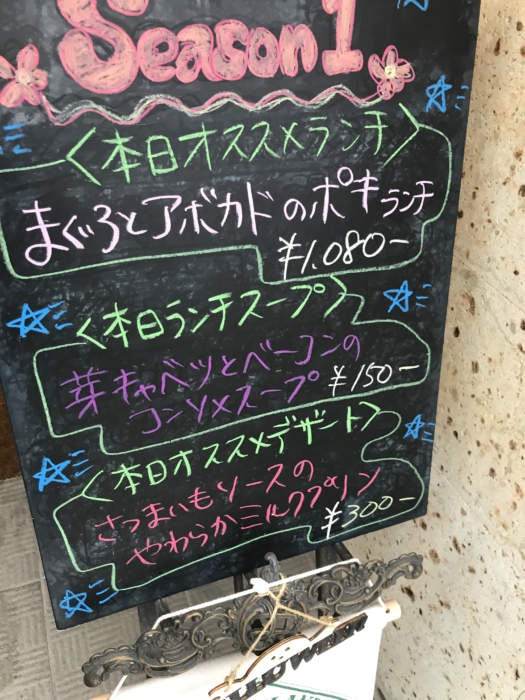 Season 1
〈本日オススメランチ〉
まぐろとアボカドのポキランチ
¥1,080-
〈本日ランチスープ〉
芽キャベツとベーコンの
コンソメスープ ¥150-
〈本日オススメデザート〉
さつまいもソースの
やわらかミルクプリン
¥300-